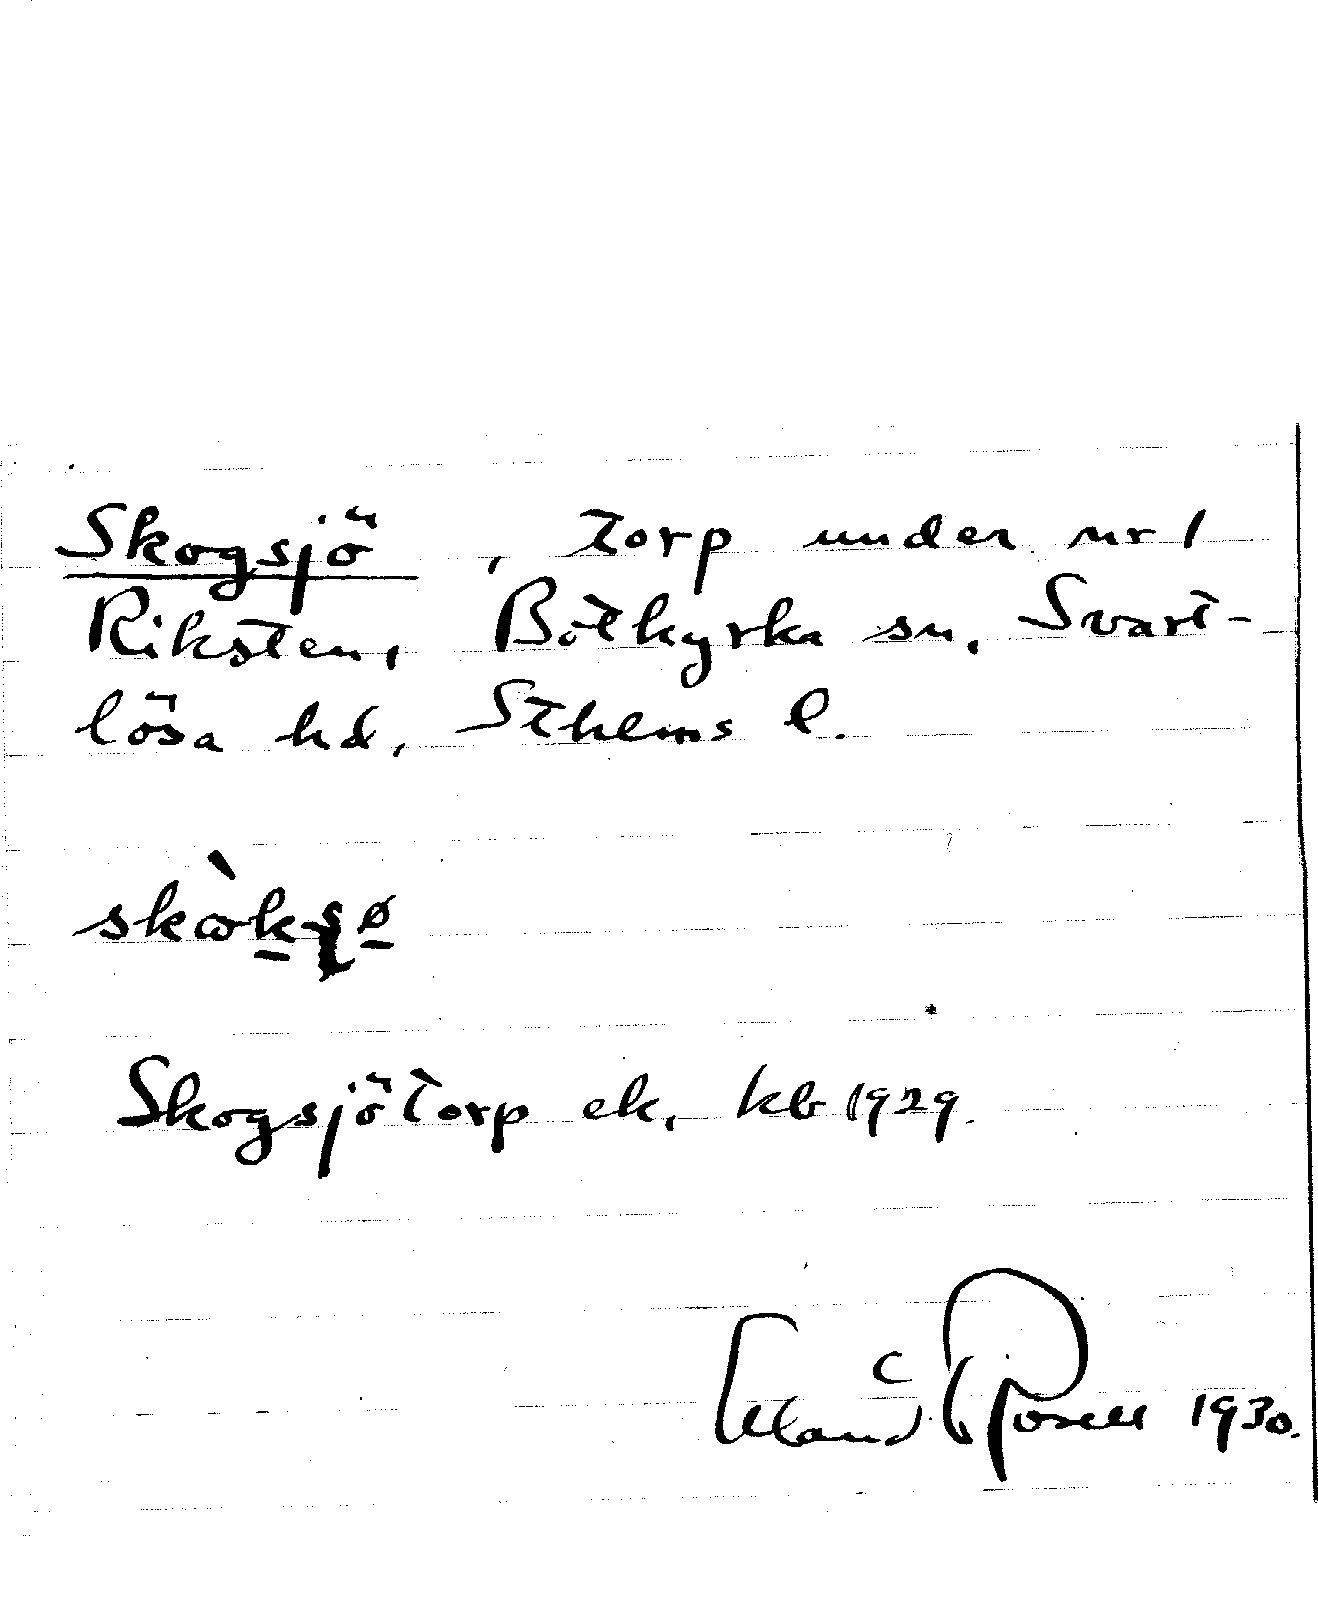 Skogsjö, torp under nr 1
Riksten, Botkyrka sn, Svart-
lösa hd, Sthlms l.
Skogsjötorp ek, kb 1929.
Rosell 1930.